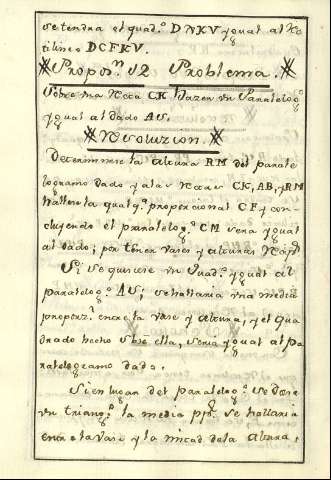 se tendra el quad.º DNKV ygual al Rec
tilineo DCFKV.
Propos.ⁿ 12 Problema.
Sobre una Recta CK hazer un Paralelog.º
ygual al dado AS.
Resoluzion.
Determinese la altura RM del parale
logramo dado y a las Rectas CK, AB, y RM
hallese la quarta proporcional CF y con-
cluyendo el paralelog.º CM sera ygual
al dado; por tener vases y alturas
Si se quisiere un Quad.º ygual al
paralelog.º AS; se hallaria una media
propor.l entre la vase y altura, y el Qua
drado hecho sobre ella, seria ygual al pa
ralelogramo dado.
Si en lugar del paralelog.º se diere
un triang.º la media se hallaria
entre la vase y la mitad dela altura,